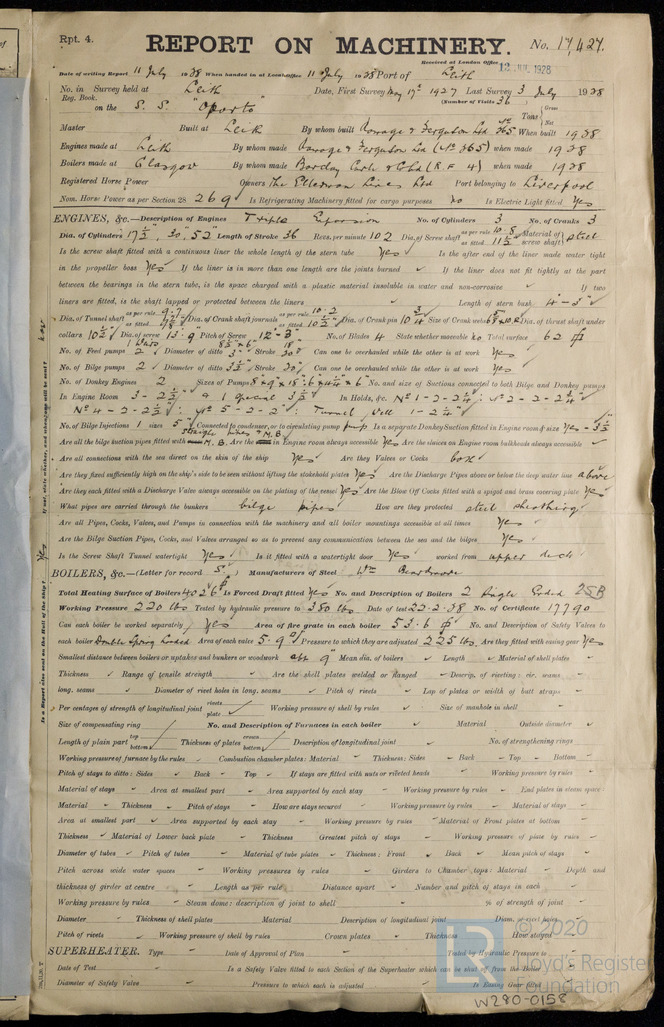 Rpt. 4.
REPORT ON MACHINERY. No. 17,427.
Received at London Office 12 JUL 1928
Date of writing Report 11 July 1928 When handed in at Local Office 11 July 1928 Port of Leith
No. in Survey held at Leith Date, First Survey May 17th 1927 Last Survey 3 July 1928
Reg. Book. (Number of Visits 36
on the S. S. "Oporto" Tons { Gross Net
Master Built at Leith By whom built Ramage & Ferguson Ltd No 265 When built 1928
Engines made at Leith By whom made Ramage & Ferguson Ltd (No 265) when made 1928
Boilers made at Glasgow By whom made Barclay Curle & Co Ld (R.F. 4) when made 1928
Registered Horse Power Owners The Ellerman Lines Ltd Port belonging to Liverpool
Nom. Horse Power as per Section 28 269 Is Refrigerating Machinery fitted for cargo purposes no Is Electric Light fitted Yes
ENGINES, &c.—Description of Engines Triple Expansion No. of Cylinders 3 No. of Cranks 3
Dia. of Cylinders 17½", 30", 52" Length of Stroke 36 Revs. per minute 102 Dia. of Screw shaft as per rule 10.8 as fitted 11½" Material of screw shaft steel
Is the screw shaft fitted with a continuous liner the whole length of the stern tube Yes Is the after end of the liner made water tight
in the propeller boss Yes If the liner is in more than one length are the joints burned ✓ If the liner does not fit tightly at the part
between the bearings in the stern tube, is the space charged with a plastic material insoluble in water and non-corrosive ✓ If two
liners are fitted, is the shaft lapped or protected between the liners ✓ Length of stern bush 4'-3"
Dia. of Tunnel shaft as per rule 9.7 as fitted Dia. of Crank shaft journals as per rule 10.2 as fitted 10½" Dia. of Crank pin 10¾ Size of Crank webs Dia. of thrust shaft under
collars 10½" Dia. of screw 13'-9" Pitch of Screw 12'-3" No. of Blades 4 State whether moveable no Total surface 62 ft
No. of Feed pumps 2 Diameter of ditto 3" Stroke 20" Can one be overhauled while the other is at work Yes
No. of Bilge pumps 2 Diameter of ditto 3½" Stroke 20" Can one be overhauled while the other is at work Yes
No. of Donkey Engines 2 Sizes of Pumps No. and size of Suctions connected to both Bilge and Donkey pumps
In Engine Room 3 - 2½" & 1 special 3½" In Holds, &c. No 1 - 2 - 2¼" : No 2 - 2 - 2¼"
No 4 - 2 - 2½" : No 5 - 2 - 2" : Tunnel Well 1 - 2½"
No. of Bilge Injections 1 sizes 5" Connected to condenser, or to circulating pump pump Is a separate Donkey Suction fitted in Engine room & size Yes - 3½"
Are all the bilge suction pipes fitted with M.B. Are the in Engine room always accessible Yes Are the sluices on Engine room bulkheads always accessible ✓
Are all connections with the sea direct on the skin of the ship Yes Are they Valves or Cocks both
Are they fixed sufficiently high on the ship's side to be seen without lifting the stokehold plates Yes Are the Discharge Pipes above or below the deep water line above
Are they each fitted with a Discharge Valve always accessible on the plating of the vessel Yes Are the Blow Off Cocks fitted with a spigot and brass covering plate Yes
What pipes are carried through the bunkers bilge pipes How are they protected steel sheathing
Are all Pipes, Cocks, Valves, and Pumps in connection with the machinery and all boiler mountings accessible at all times Yes
Are the Bilge Suction Pipes, Cocks, and Valves arranged so as to prevent any communication between the sea and the bilges Yes
Is the Screw Shaft Tunnel watertight Yes Is it fitted with a watertight door Yes worked from upper deck
BOILERS, &c.—(Letter for record S) Manufacturers of Steel Wm Beardmore
Total Heating Surface of Boilers 4026 ft Is Forced Draft fitted Yes No. and Description of Boilers 2 Single Ended 2SB
Working Pressure 220 lbs Tested by hydraulic pressure to 380 lbs Date of test 22-2-28 No. of Certificate 17790
Can each boiler be worked separately Yes Area of fire grate in each boiler 53.6 ft No. and Description of Safety Valves to
each boiler Double Spring Loaded Area of each valve 5.9 Pressure to which they are adjusted 225 lbs Are they fitted with easing gear Yes
Smallest distance between boilers or uptakes and bunkers or woodwork abt 9" Mean dia. of boilers Length Material of shell plates
Thickness Range of tensile strength Are the shell plates welded or flanged Descrip. of riveting: cir. seams
long. seams Diameter of rivet holes in long. seams Pitch of rivets Lap of plates or width of butt straps
Per centages of strength of longitudinal joint rivets plate Working pressure of shell by rules Size of manhole in shell
Size of compensating ring No. and Description of Furnaces in each boiler Material Outside diameter
Length of plain part top bottom Thickness of plates crown bottom Description of longitudinal joint No. of strengthening rings
Working pressure of furnace by the rules Combustion chamber plates: Material Thickness: Sides Back Top Bottom
Pitch of stays to ditto: Sides Back Top If stays are fitted with nuts or riveted heads Working pressure by rules
Material of stays Area at smallest part Area supported by each stay Working pressure by rules End plates in steam space
Material Thickness Pitch of stays How are stays secured Working pressure by rules Material of stays
Area at smallest part Area supported by each stay Working pressure by rules Material of Front plates at bottom
Thickness Material of Lower back plate Thickness Greatest pitch of stays Working pressure of plate by rules
Diameter of tubes Pitch of tubes Material of tube plates Thickness: Front Back Mean pitch of stays
Pitch across wide water spaces Working pressures by rules Girders to Chamber tops: Material Depth and
thickness of girder at centre Length as per rule Distance apart Number and pitch of stays in each
Working pressure by rules Steam dome: description of joint to shell % of strength of joint
Diameter Thickness of shell plates Material Description of longitudinal joint Diam. of rivet holes
Pitch of rivets Working pressure of shell by rules Crown plates Thickness How stayed
SUPERHEATER. Type Date of Approval of Plan Tested by Hydraulic Pressure to
Date of Test Is a Safety Valve fitted to each Section of the Superheater which can be shut off from the Boiler
Diameter of Safety Valve Pressure to which each is adjusted Is Easing Gear fitted
© 2020
Lloyd's Register
Foundation
W280-0158
Is a Report also sent on the Hull of the Ship? Yes